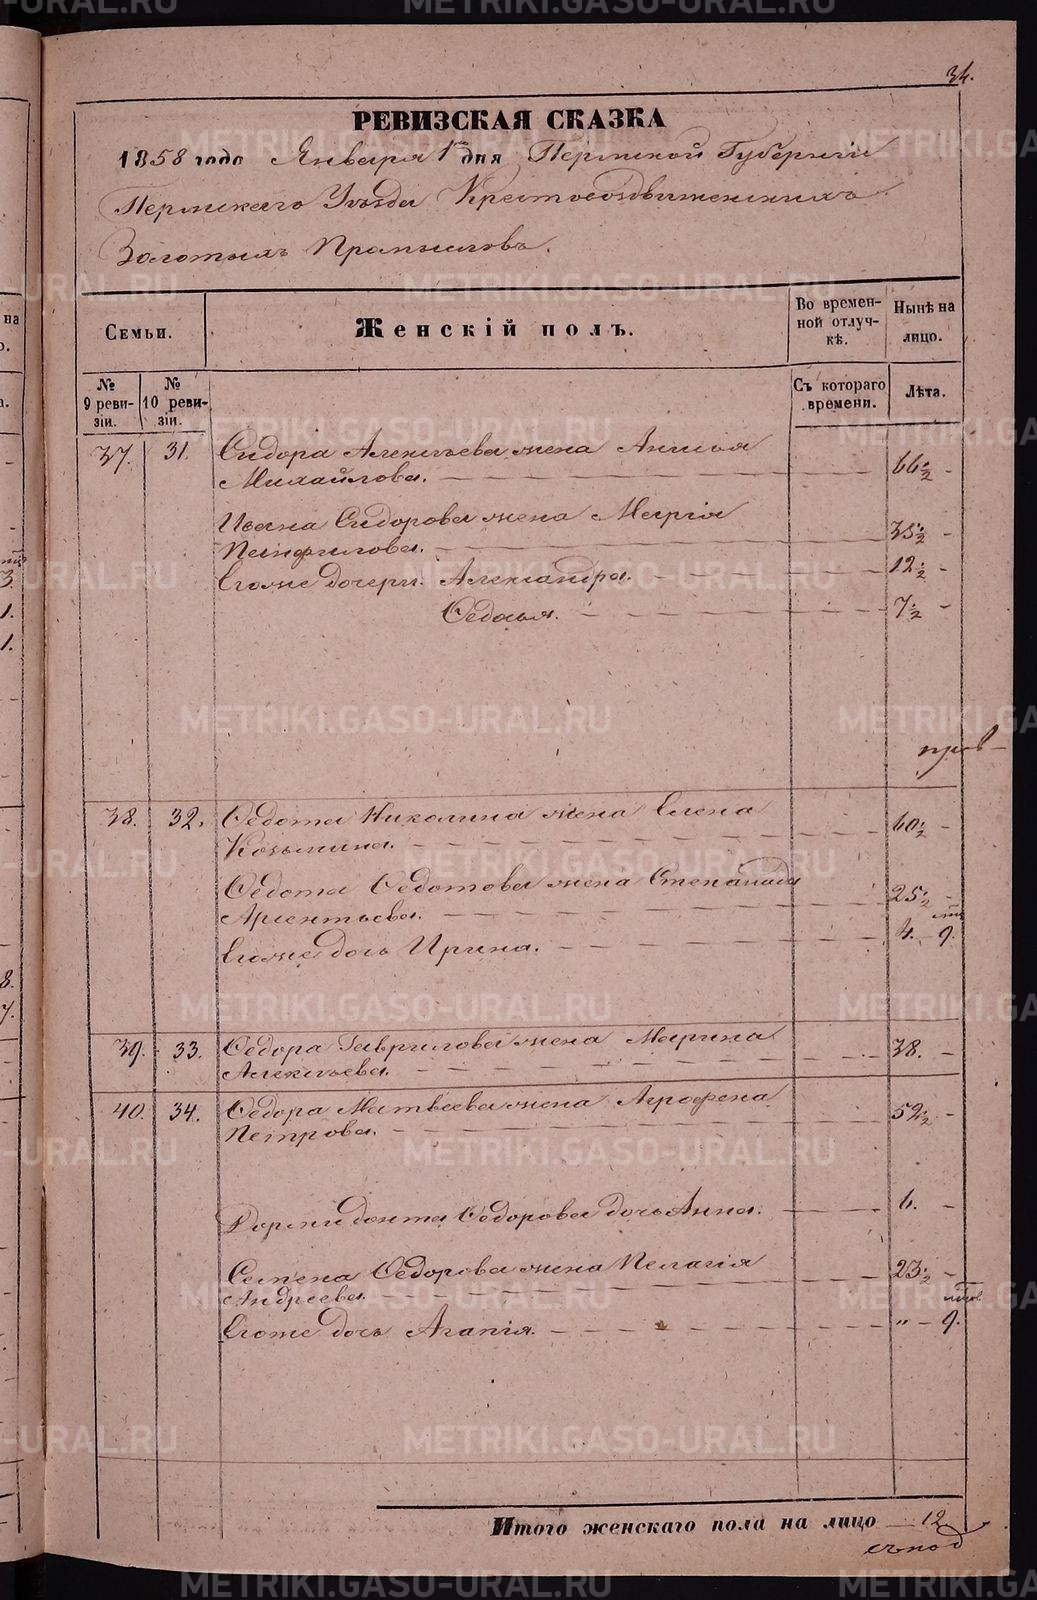 34.
РЕВИЗСКАЯ СКАЗКА
1858 года Января 1го дня Пермской Губернiи
Пермскаго Уѣзда Крестовоздвиженскихъ
Золотыхъ Промысловъ.
Семьи.
Женскій полъ.
Во времен-
ной отлуч-
кѣ.
Нынѣ на
лицо.
№
9 реви-
зіи.
№
10 реви-
зіи.
Съ котораго
времени.
Лѣта.
37. 31. Сидора Алексѣева жена
Михайлова. 66½
Ивана Сидорова жена Марія
Панфилова. 35½
Егоже дочери. Александра. 12½
Федосья. 7½
38. 32. Федота Никонина жена Елена
Козьмина. 60½
Федота Федотова жена Степанида
Арсентьева. 25½
Егоже дочь Ирина. 4. 9.
39. 33. Федора Гаврилова жена Марина
Алексѣева. 38.
40. 34. Федора Матвѣева жена Агрофена
Петрова. 52½
Дормидонта Федорова дочь Анна. 6.
Семена Федорова жена Пелагія
Андреева. 23½
Егоже дочь Агапія. " 9.
Итого женскаго пола на лицо 12
METRIKI.GASO-URAL.RU